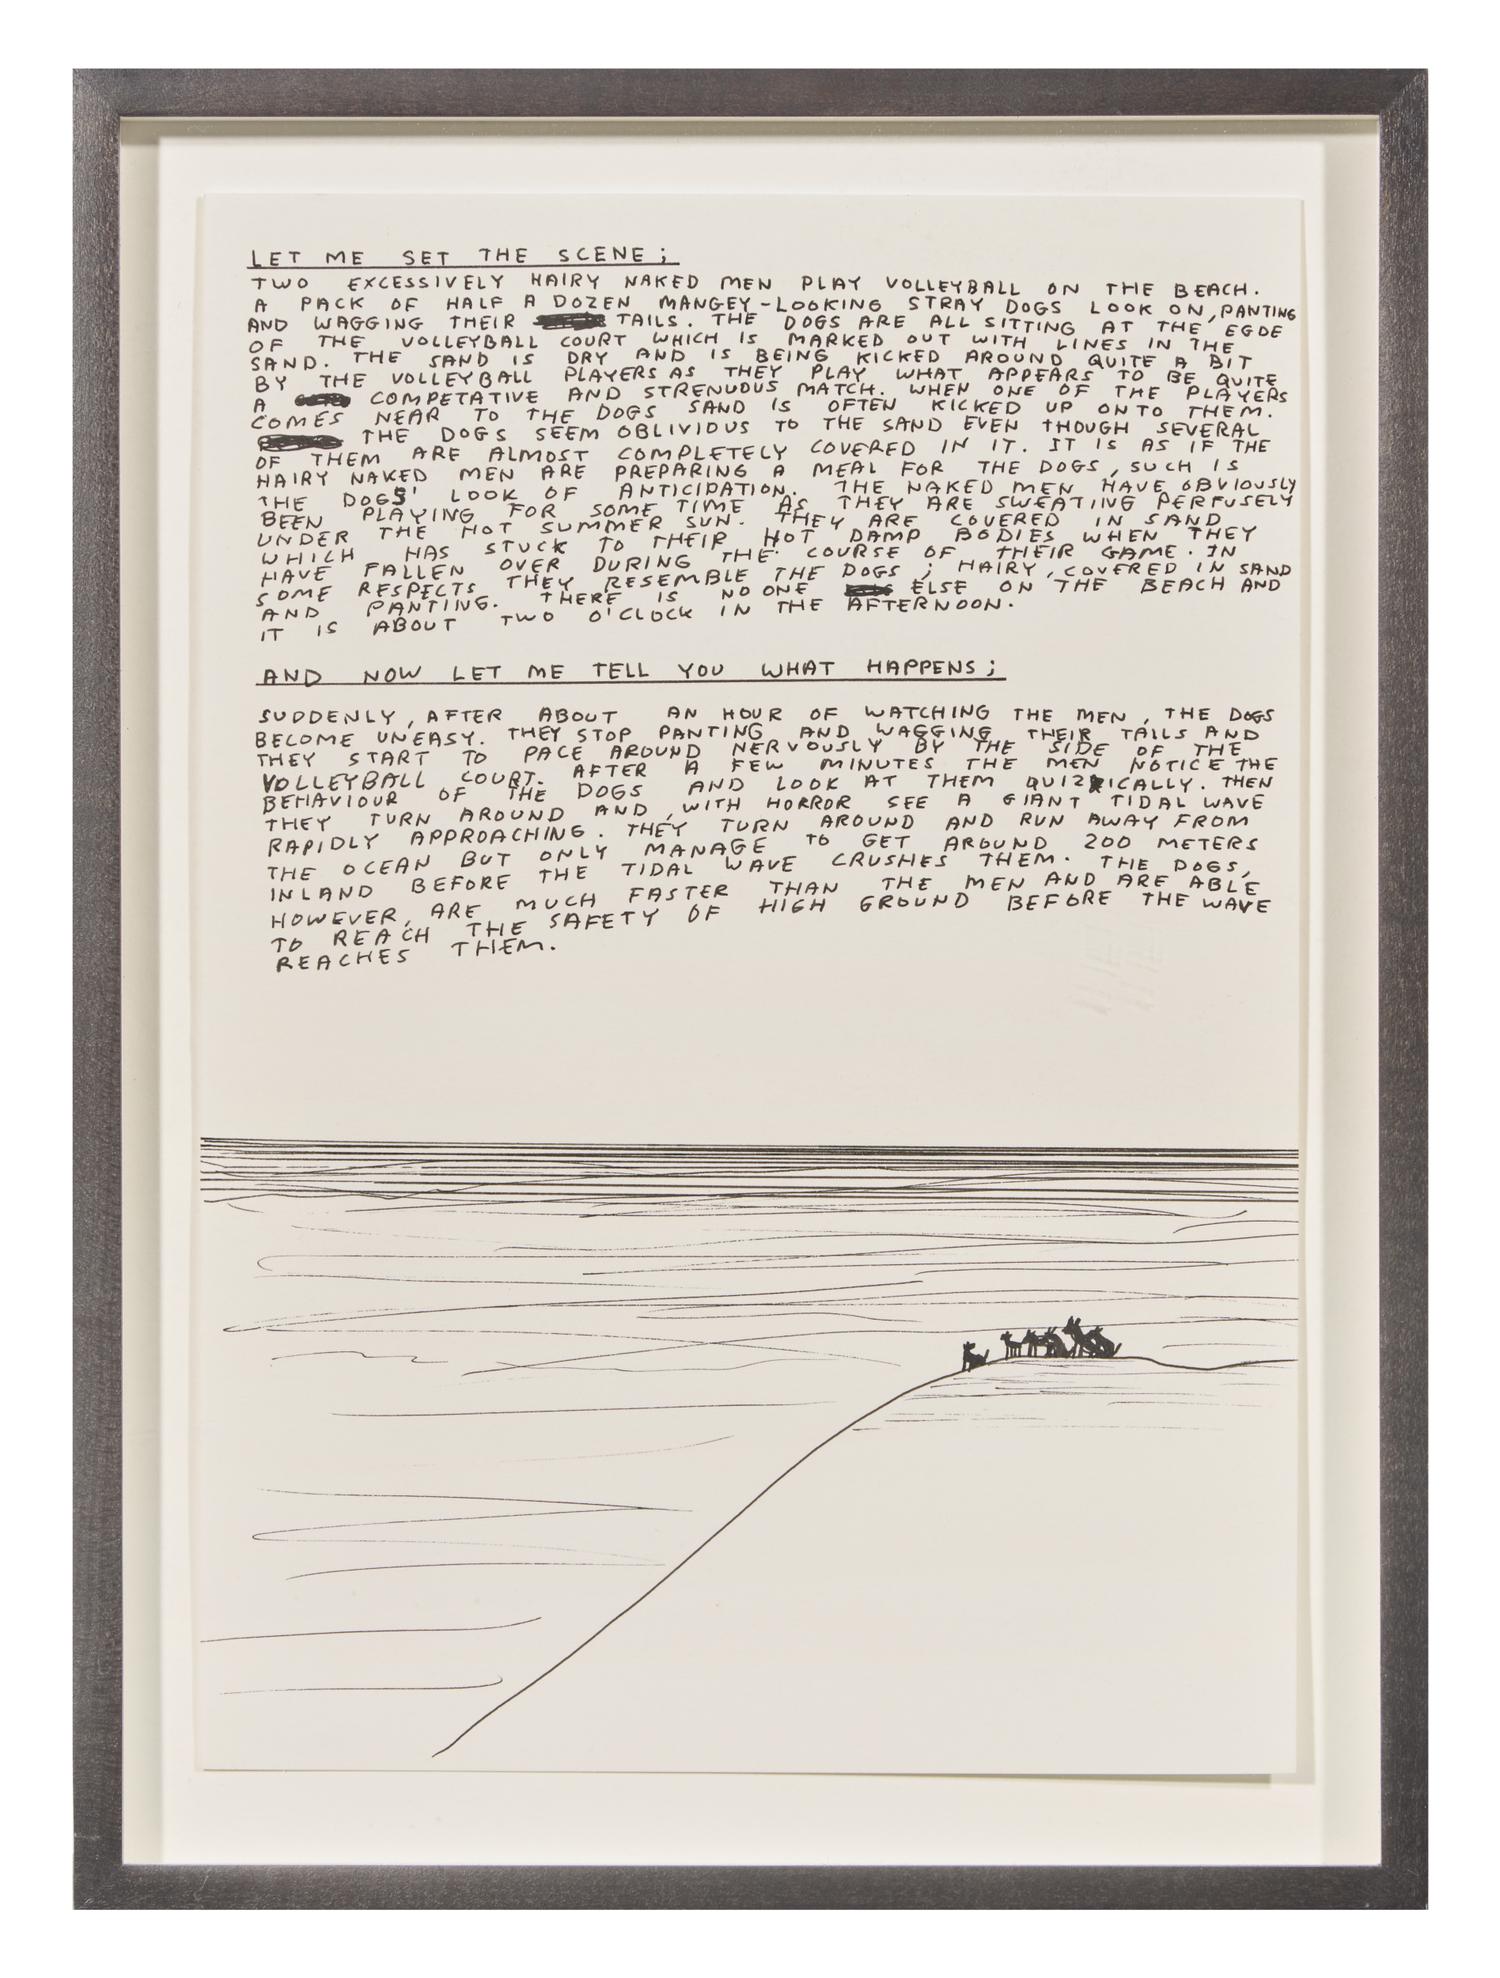 LET ME SET THE SCENE ;
TWO EXCESSIVELY HAIRY NAKED MEN PLAY VOLLEYBALL ON THE BEACH.
A PACK OF HALF A DOZEN MANGEY-LOOKING STRAY DOGS LOOK ON, PANTING
AND WAGGING THEIR TAILS. THE DOGS ARE ALL SITTING AT THE EGDE
OF THE VOLLEYBALL COURT WHICH IS MARKED OUT WITH LINES IN THE
SAND. THE SAND IS DRY AND IS BEING KICKED AROUND QUITE A BIT
BY THE VOLLEYBALL PLAYERS AS THEY PLAY WHAT APPEARS TO BE QUITE
A COMPETATIVE AND STRENUOUS MATCH. WHEN ONE OF THE PLAYERS
COMES NEAR TO THE DOGS SAND IS OFTEN KICKED UP ONTO THEM.
THE DOGS SEEM OBLIVIOUS TO THE SAND EVEN THOUGH SEVERAL
OF THEM ARE ALMOST COMPLETELY COVERED IN IT. IT IS AS IF THE
HAIRY NAKED MEN ARE PREPARING A MEAL FOR THE DOGS, SUCH IS
THE DOGS' LOOK OF ANTICIPATION. THE NAKED MEN HAVE OBVIOUSLY
BEEN PLAYING FOR SOME TIME AS THEY ARE SWEATING PERFUSELY
UNDER THE HOT SUMMER SUN. THEY ARE COVERED IN SAND
WHICH HAS STUCK TO THEIR HOT DAMP BODIES WHEN THEY
HAVE FALLEN OVER DURING THE COURSE OF THEIR GAME. IN
SOME RESPECTS THEY RESEMBLE THE DOGS ; HAIRY, COVERED IN SAND
AND PANTING. THERE IS NO ONE ELSE ON THE BEACH AND
IT IS ABOUT TWO O'CLOCK IN THE AFTERNOON.
AND NOW LET ME TELL YOU WHAT HAPPENS ;
SUDDENLY, AFTER ABOUT AN HOUR OF WATCHING THE MEN, THE DOGS
BECOME UNEASY. THEY STOP PANTING AND WAGGING THEIR TAILS AND
THEY START TO PACE AROUND NERVOUSLY BY THE SIDE OF THE
VOLLEYBALL COURT. AFTER A FEW MINUTES THE MEN NOTICE THE
BEHAVIOUR OF THE DOGS AND LOOK AT THEM QUIZICALLY. THEN
THEY TURN AROUND AND, WITH HORROR SEE A GIANT TIDAL WAVE
RAPIDLY APPROACHING. THEY TURN AROUND AND RUN AWAY FROM
THE OCEAN BUT ONLY MANAGE TO GET AROUND 200 METERS
INLAND BEFORE THE TIDAL WAVE CRUSHES THEM. THE DOGS,
HOWEVER, ARE MUCH FASTER THAN THE MEN AND ARE ABLE
TO REACH THE SAFETY OF HIGH GROUND BEFORE THE WAVE
REACHES THEM.